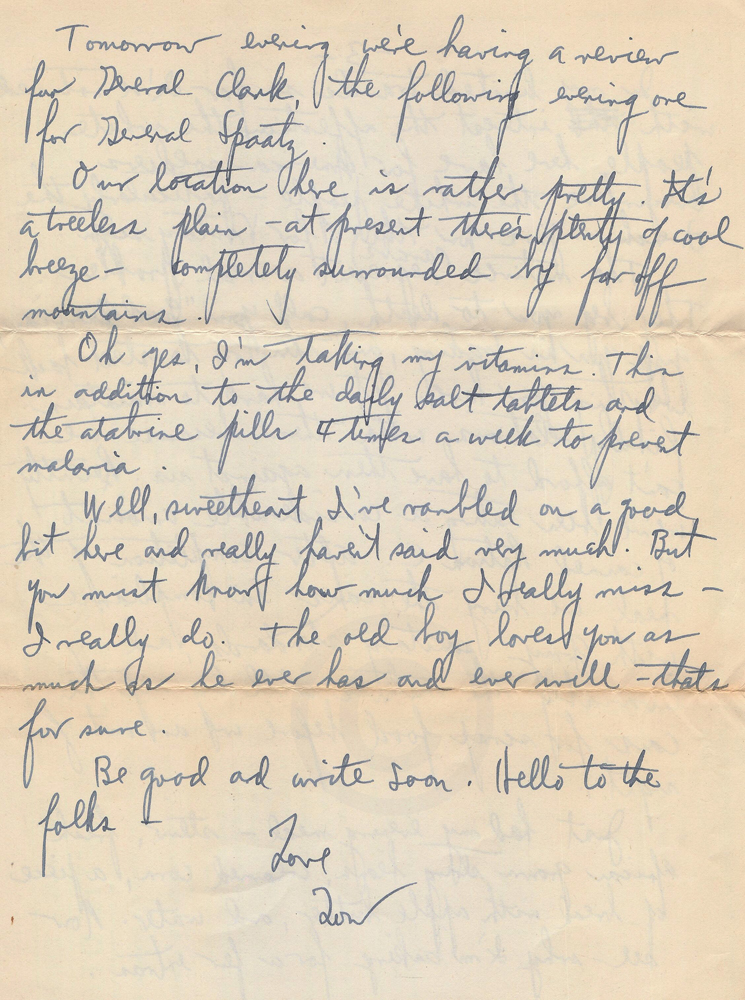 Tomorrow evening we're having a review
for General Clark, the following evening one
for General Spaatz.
Our location here is rather pretty. It's
a treeless plain - at present there's plenty of cool
breeze - completely surrounded by far off
mountains.
Oh yes, I'm taking my vitamins. This
in addition to the daily salt tablets and
the atabrine pills 4 times a week to prevent
malaria.
Well, sweetheart I've rambled on a good
bit here and really haven't said very much. But
you must know how much I really miss -
I really do. The old boy loves you as
much as he ever has and ever will - thats
for sure.
Be good and write soon. Hello to the
folks -
Love
Lou